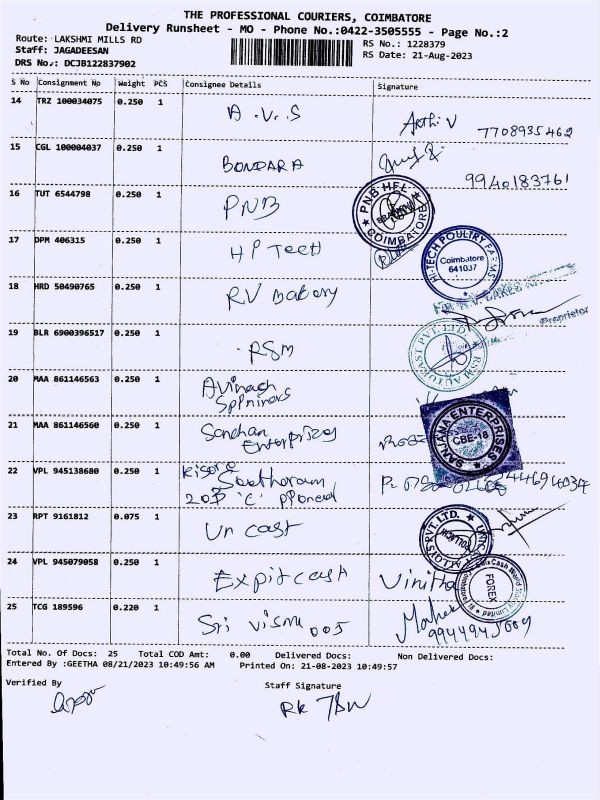 THE PROFESSIONAL COURIERS, COIMBATORE
Delivery Runsheet - MO - Phone No.:0422-3505555 - Page No.:2
Route: LAKSHMI MILLS RD
RS No.: 1228379
Staff: JAGADEESAN
RS Date: 21-Aug-2023
DRS No.: DCJB122837902
S No Consignment No Weight PCS Consignee Details Signature
14 TRZ 100034075 0.250 1 A.V.S Arthi V 7708935462
15 CGL 100004037 0.250 1 BONDARA 9940183761
16 TUT 6544798 0.250 1 PNB PNB HFL COIMBATORE
17 DPM 406315 0.250 1 HP Tech HI-TECH POULTRY FARMS Coimbatore 641037
18 HRD 50490765 0.250 1 RV Bakery Proprietor
19 BLR 6900396517 0.250 1 RSM RSM AUTOKAST PVT. LTD.
20 MAA 861146563 0.250 1 Avinash Spinners
21 MAA 861146560 0.250 1 Enterprizes SANJANA ENTERPRISES CBE-18
22 VPL 945138680 0.250 1 Kisore 203 'C'
23 RPT 9161812 0.075 1 Un cast PVT. LTD.
24 VPL 945079058 0.250 1 Expitcash Vinitha FOREX
25 TCG 189596 0.220 1 Sri Visnu 005
Total No. Of Docs: 25 Total COD Amt: 0.00 Delivered Docs: Non Delivered Docs:
Entered By :GEETHA 08/21/2023 10:49:56 AM Printed On: 21-08-2023 10:49:57
Verified By Staff Signature